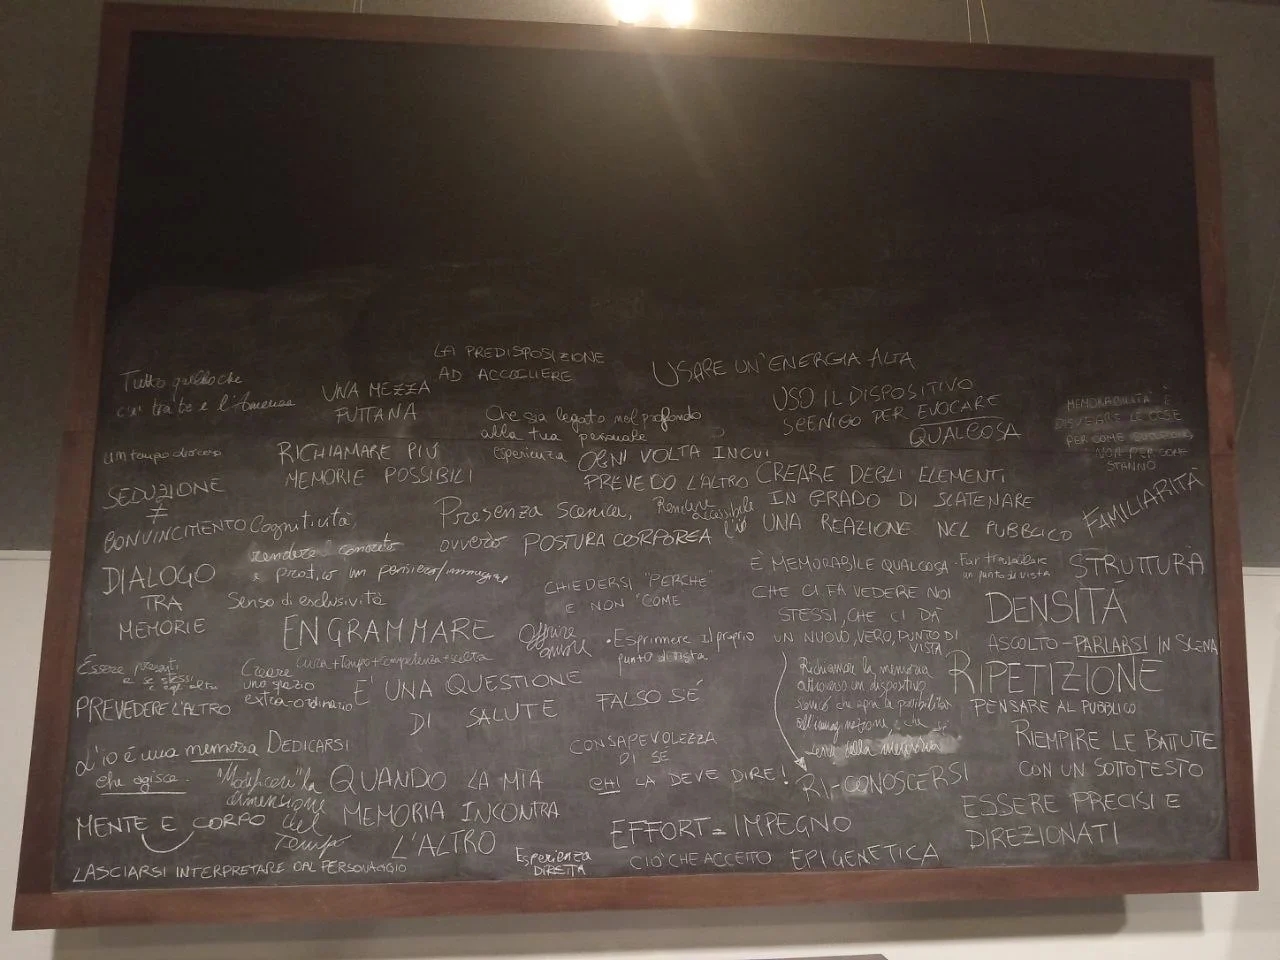 LA PREDISPOSIZIONE
AD ACCOGLIERE
USARE UN'ENERGIA ALTA
Tutto quello che
c'è tra te e l'America
UNA MEZZA
PUTTANA
Che sia legato nel profondo
alla tua personale
esperienza
USO IL DISPOSITIVO
SCENICO PER EVOCARE
QUALCOSA
MEMORABILITÀ È
LE COSE
PER COME
NON PER COME
STANNO
un tempo
RICHIAMARE PIÙ
MEMORIE POSSIBILI
OGNI VOLTA IN CUI
PREVEDO L'ALTRO
CREARE DEGLI ELEMENTI
IN GRADO DI SCATENARE
UNA REAZIONE NEL PUBBLICO
SEDUZIONE
≠
CONVINCIMENTO
Cognitività,
rendere concreto
e pratico un pensiero/immagine
Presenza scenica,
ovvero POSTURA CORPOREA
Rendere
accessibile
FAMILIARITÀ
DIALOGO
TRA
MEMORIE
Senso di esclusività
CHIEDERSI "PERCHE"
E NON "COME
È MEMORABILE QUALCOSA
CHE CI FA VEDERE NOI
STESSI, CHE CI DÀ
UN NUOVO, VERO, PUNTO DI
VISTA
Far traslare
un punto di vista
STRUTTURA
DENSITÀ
ASCOLTO - PARLARSI IN SCENA
ENGRAMMARE
cura + tempo + competenza + scelta
Offrire
amore
• Esprimere il proprio
punto di vista
Essere presenti
a se stessi
e agli altri
Creare
uno spazio
extra-ordinario
PREVEDERE L'ALTRO
E' UNA QUESTIONE
DI SALUTE
FALSO SÉ
Richiamare la memoria
attraverso un dispositivo
scenico che apra la possibilità
all'immaginazione, che
della memoria
RIPETIZIONE
PENSARE AL PUBBLICO
RIEMPIRE LE BATTUTE
CON UN SOTTOTESTO
L'io è una memoria
che agisce.
DEDICARSI
CONSAPEVOLEZZA
DI SÉ
"Modificare" la
dimensione
del
Tempo
QUANDO LA MIA
MEMORIA INCONTRA
L'ALTRO
CHI LA DEVE DIRE!
RI-CONOSCERSI
ESSERE PRECISI E
DIREZIONATI
MENTE E CORPO
EFFORT = IMPEGNO
LASCIARSI INTERPRETARE DAL PERSONAGGIO
Esperienza
DIRETTA
CIO' CHE ACCETTO
EPIGENETICA